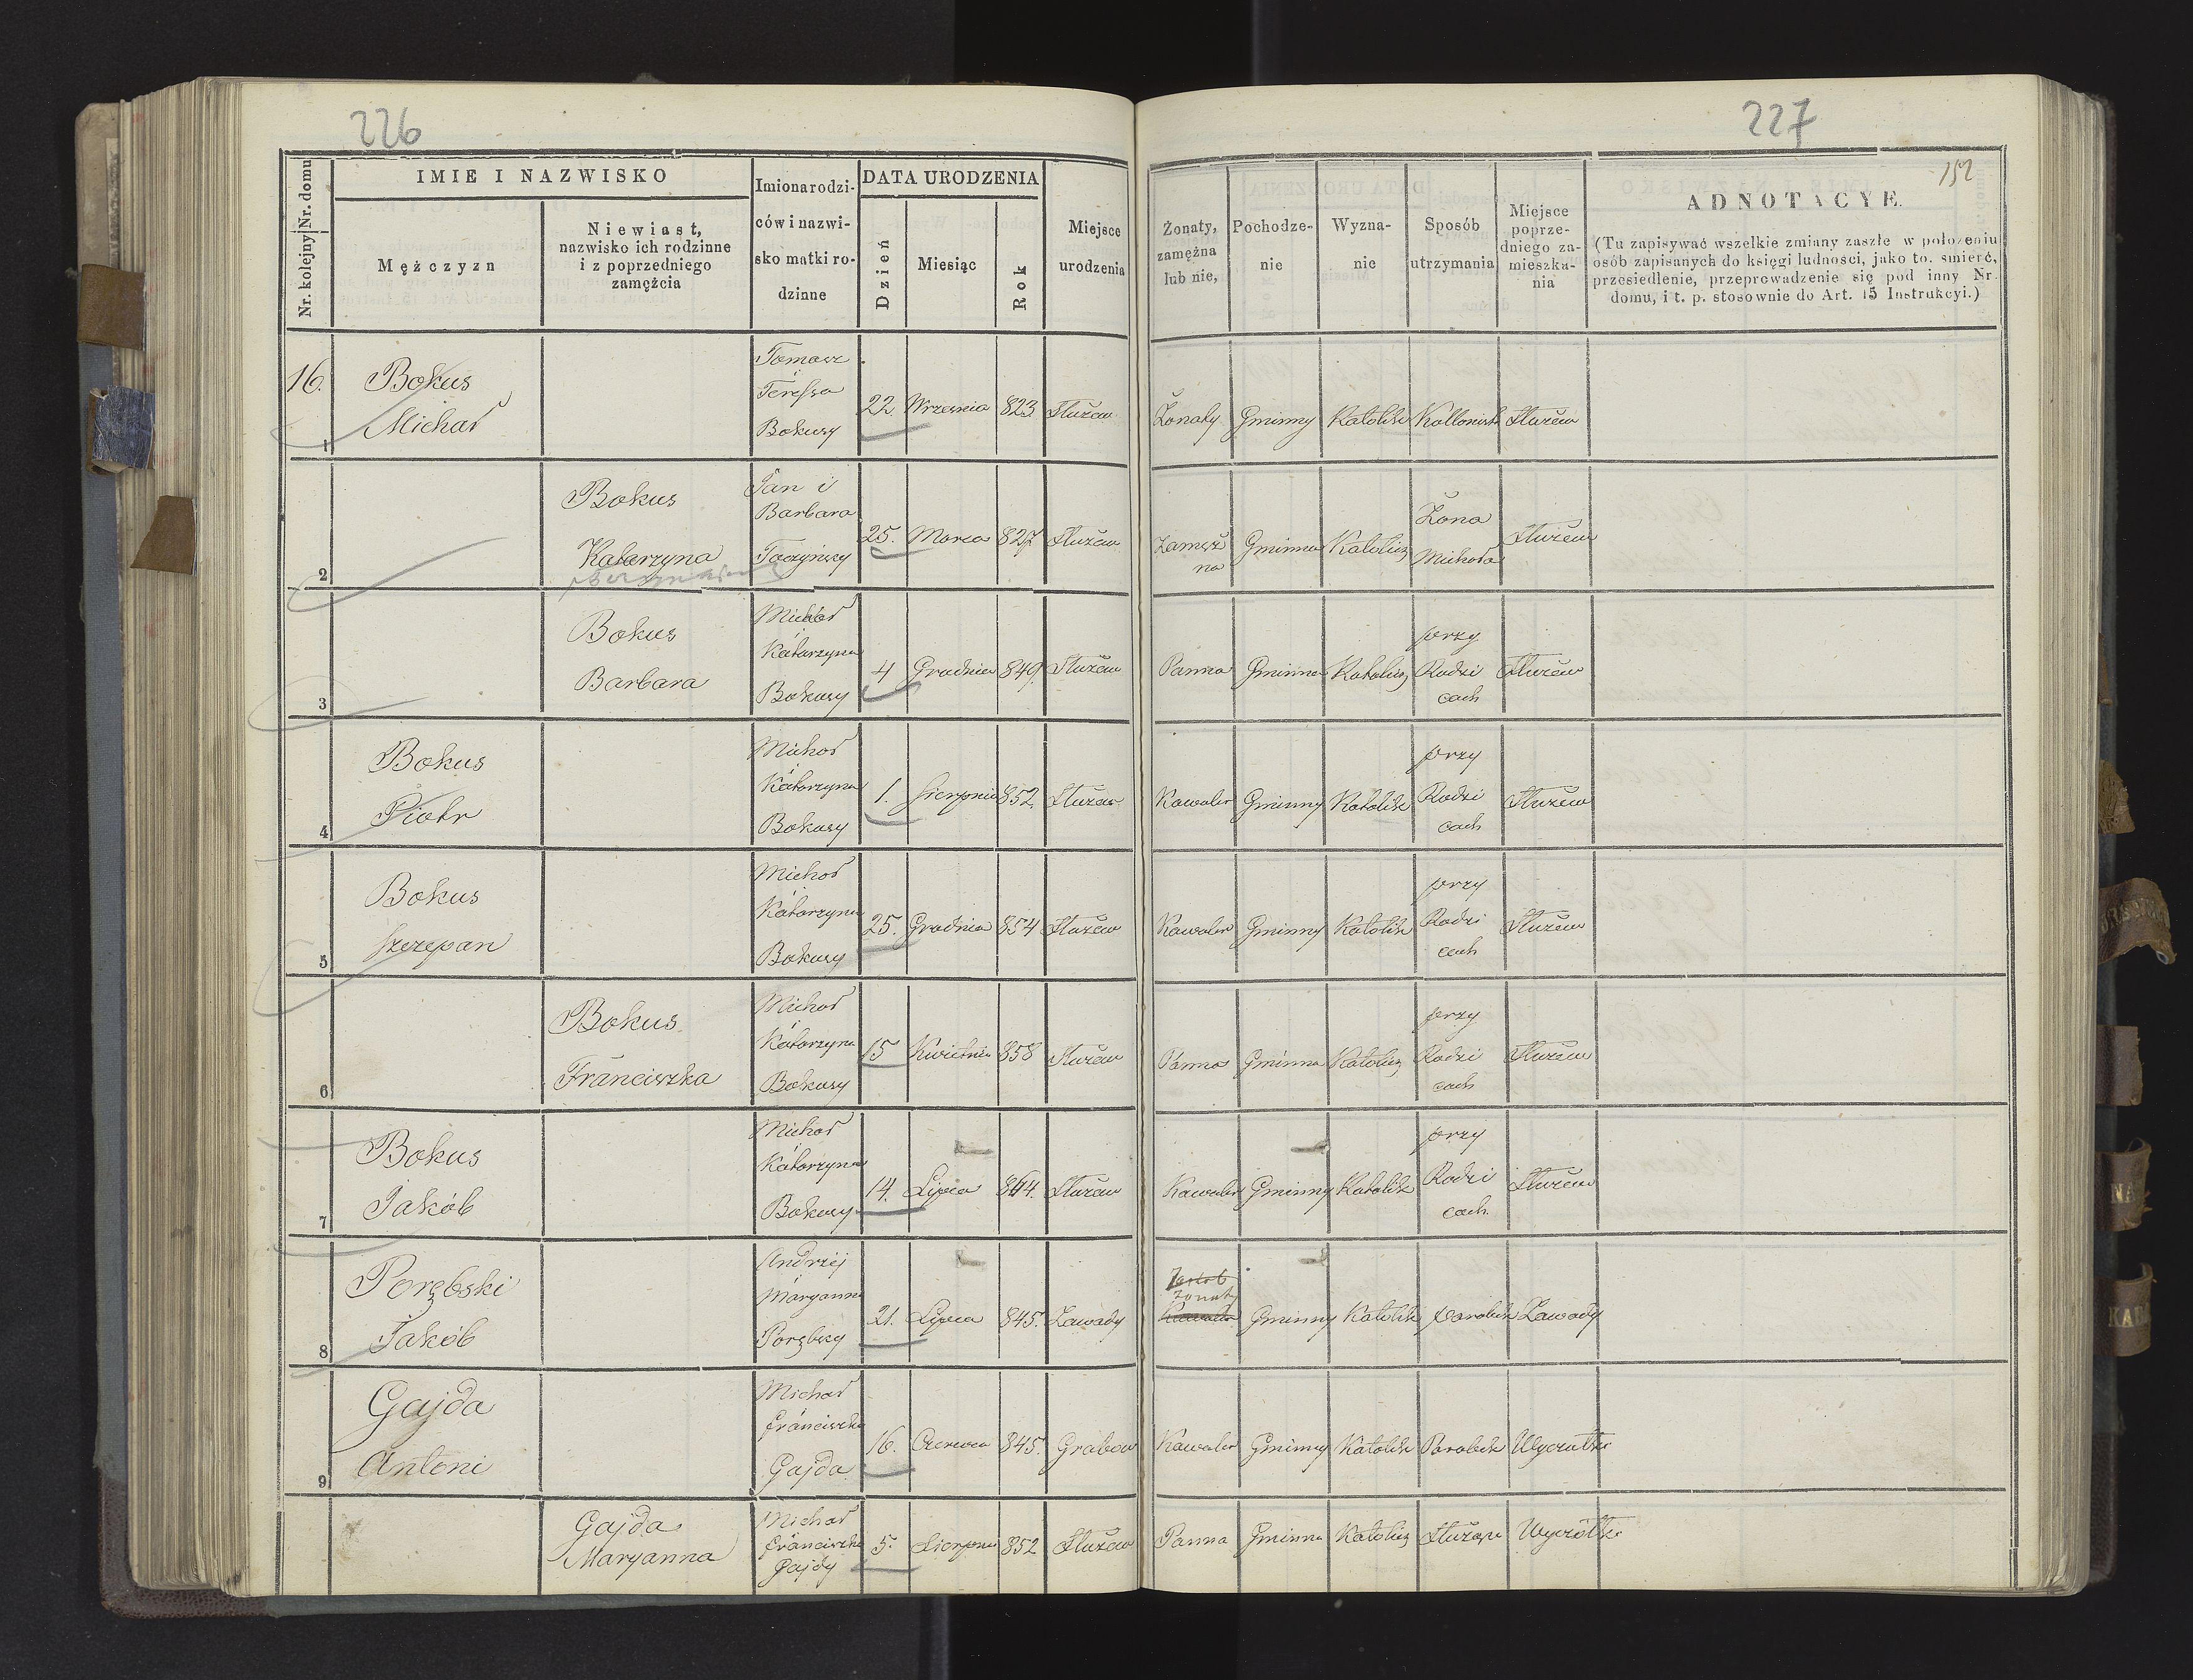 226
227
152
Nr. kolejny Nr. domu
IMIE I NAZWISKO
Mężczyzn
Niewiast,
nazwisko ich rodzinne
i z poprzedniego
zamężcia
Imiona rodzi-
ców i nazwi-
sko matki ro-
dzinne
DATA URODZENIA
Dzień
Miesiąc
Rok
Miejsce
urodzenia
Żonaty,
zamężna
lub nie,
Pochodze-
nie
Wyzna-
nie
Sposób
utrzymania
Miejsce
poprze-
dniego za-
mieszka-
nia
ADNOTACYE.
(Tu zapisywać wszelkie zmiany zaszłe w położeniu
osób zapisanych do księgi ludności, jako to. śmierć,
przesiedlenie, przeprowadzenie się pod inny Nr.
domu, i t. p. stosownie do Art. 15 Instrukcyi.)
16.
1
Bokus
Michał
Tomasz
i
Teressa
Bokusy
22. Września 823 Służew
Żonaty Gminny Katolik Kollonist Służew
2
Bokus
Katarzyna
Jan i
Barbara
Taczyńscy
25. Marca 827. Służew
Zamęż
na
Gminna Katolicz
Żona
Michała
Służew
3
Bokus
Barbara
Michał
i
Katarzyna
Bokusy
4 Grudnia 849. Służew
Panna Gminna Katolicz
przy
Rodzi
cach
Służew
4
Bokus
Piotr
Michał
i
Katarzyna
Bokusy
1. Sierpnia 852 Służew
Kawaler Gminny Katolik
przy
Rodzi
cach
Służew
5
Bokus
Szczepan
Michał
i
Katarzyna
Bokusy
25. Grudnia 854 Służew
Kawaler Gminny Katolik
przy
Rodzi
cach
Służew
6
Bokus
Franciszka
Michał
i
Katarzyna
Bokusy
15 Kwietnia 858 Służew
Panna Gminna Katolicz
przy
Rodzi
cach
Służew
7
Bokus
Jakób
Michał
i
Katarzyna
Bokusy
14. Lipca Służew
Kawaler Gminny Katolik
przy
Rodzi
cach.
Służew
8
Porębski
Jakób
Andrzéj
i
Maryanna
Porębscy
21. Lipca 845. Zawady
Żonaty
Kawaler
Gminny Katolik Parobek Zawady
9
Gajda
Antoni
Michał
i
Franciszka
Gajda
16. Czerwca 845. Grabow
Kawaler Gminny Katolik Parobek Wyczułki
Gajda
Maryanna
Michał
i
Franciszka
Gajdy
5. Sierpnia 852 Służew
Panna Gminna Katolicz Służąca Wyczółki